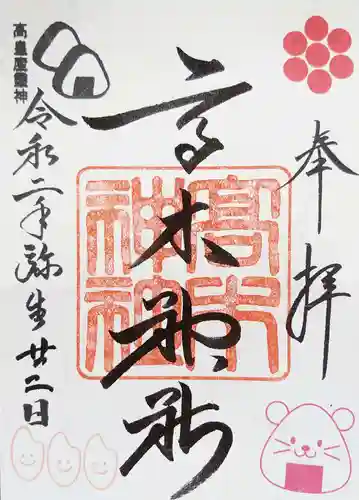 奉拝
高木神社
高木神社
高皇産霊神
令和二年弥生廿二日